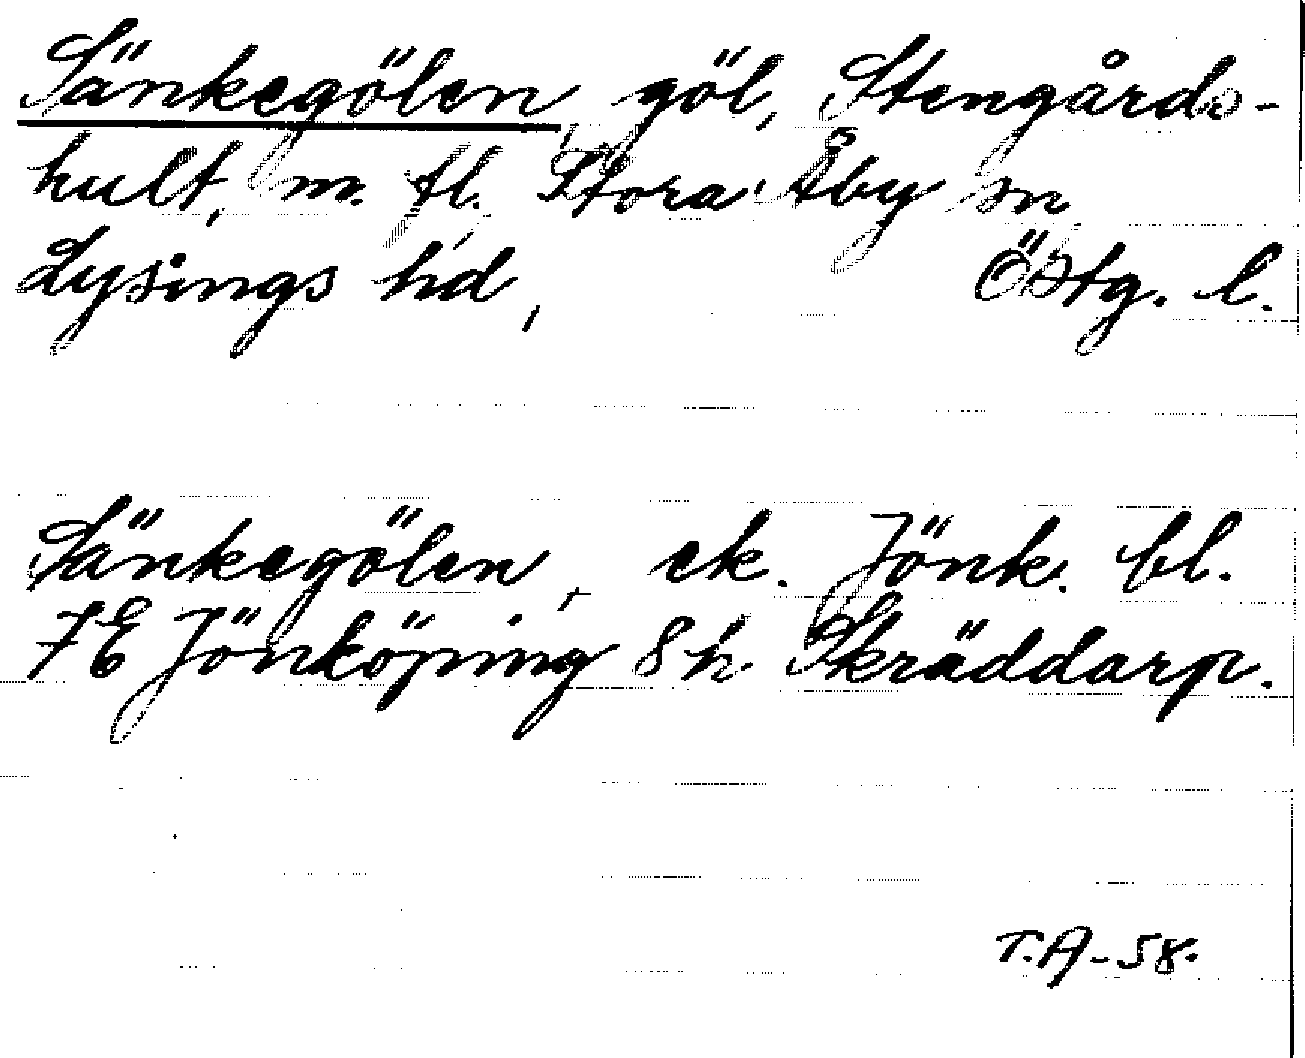 Sänkegölen, göl, Stengårds-
hult, m. fl. Stora Åby sn
Lysings hd, Östg. l.
Sänkegölen, ek. Jönk. bl.
7E Jönköping 8h. Skräddarp.
T.A-58.